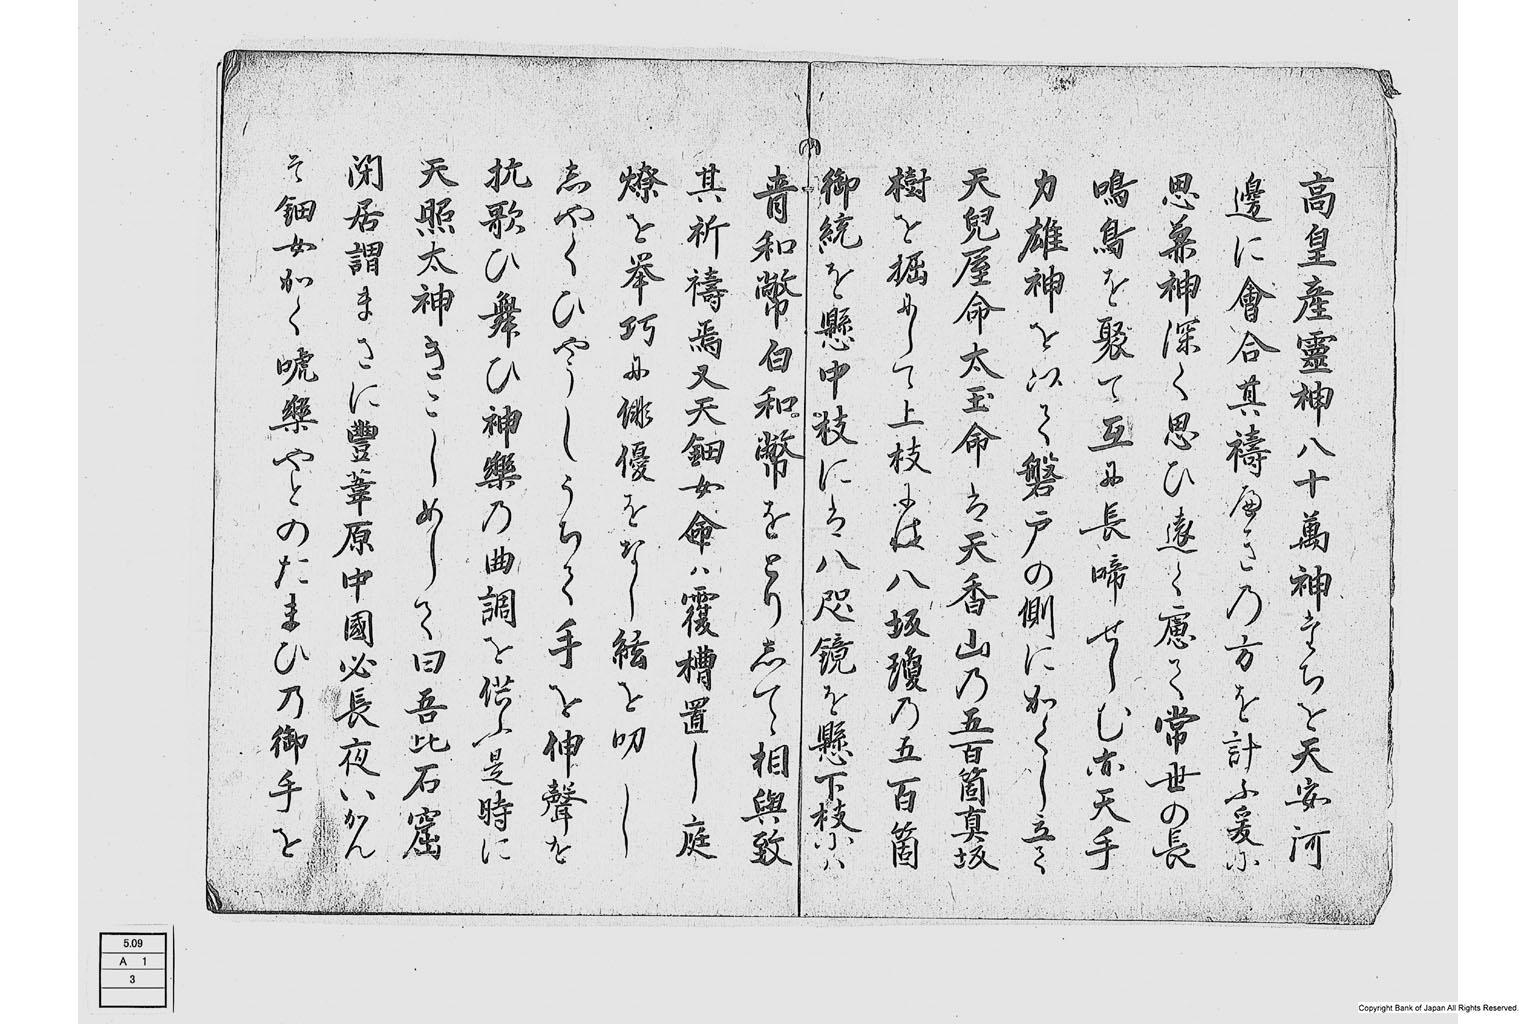 高皇産霊神八十萬神たちを天安河
邊に會合其禱へき乃方を計ふ爰に
思兼神深く思ひ遠く慮て常世の長
鳴鳥を聚て互に長啼せしむ亦天手
力雄神を以て磐戸の側にかくし立て
天兒屋命太玉命は天香山乃五百箇真坂
樹を掘にして上枝には八坂瓊乃五百箇
御統を懸中枝には八咫鏡を懸下枝には
青和幣白和幣をとりしてゝ相與致
其祈禱焉又天鈿女命ハ覆槽置し庭
燎を挙巧に俳優をなし絃を叩し
しやくひやうしうちて手を伸聲を
抗歌ひ舞ひ神樂乃曲調を供ふ是時に
天照太神きこしめして曰吾比石窟
閉居謂まさに豐葦原中國必長夜いかん
そ鈿女かく㖸樂やとのたまひ乃御手を
5.09
A 1
3
Copyright Bank of Japan All Rights Reserved.